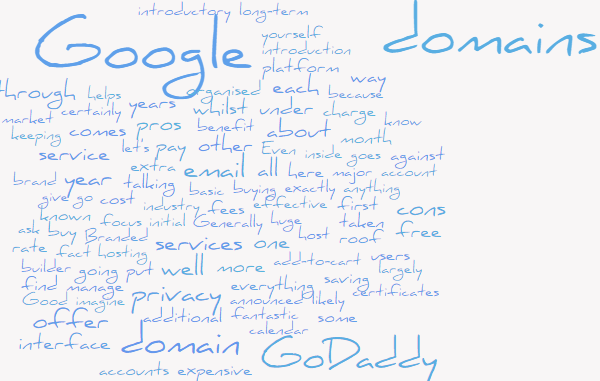 introductory long-term
Google yourself domains
introduction
platform
through helps organised each because way
market certainly years whilst under charge know
keeping comes pros benefit about month
service let's pay other Even inside goes against
extra email all here major account
brand year talking basic buying exactly anything
give go cost industry fees effective first cons
known focus initial Generally huge taken
ask buy Branded host roof free
rate fact hosting services one
builder going put well more add-to-cart users
largely
find manage everything saving
Good imagine privacy announced likely certificates
offer additional fantastic some
calendar
interface domain GoDaddy
accounts expensive